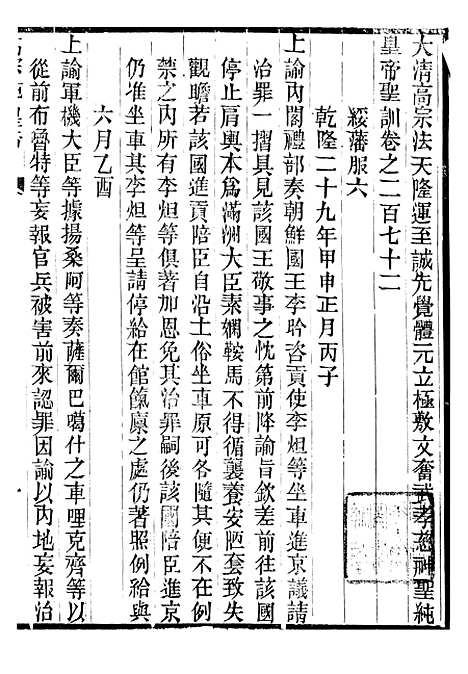 大清高宗法天隆運至誠先覺體元立極敷文奮武孝慈神聖純
皇帝聖訓卷之二百七十二
綏藩服六
乾隆二十九年甲申正月丙子
上諭內閣禮部奏朝鮮國王李昑咨貢使李烜等坐車進京議請
治罪一摺具見該國王敬事之忱第前降諭旨欽差前往該國
停止肩輿本為滿洲大臣素嫻鞍馬不得循襲養安陋套致失
觀瞻若該國進貢陪臣自沿土俗坐車原可各隨其便不在例
禁之內所有李烜等俱著加恩免其治罪嗣後該國陪臣進京
仍准坐車其李烜等呈請停給在館餼廩之處仍著照例給與
六月乙酉
上諭軍機大臣等據揚桑阿等奏薩爾巴噶什之車哩克齊等以
從前布魯特等妄報官兵被害前來認罪因諭以內地妄報治